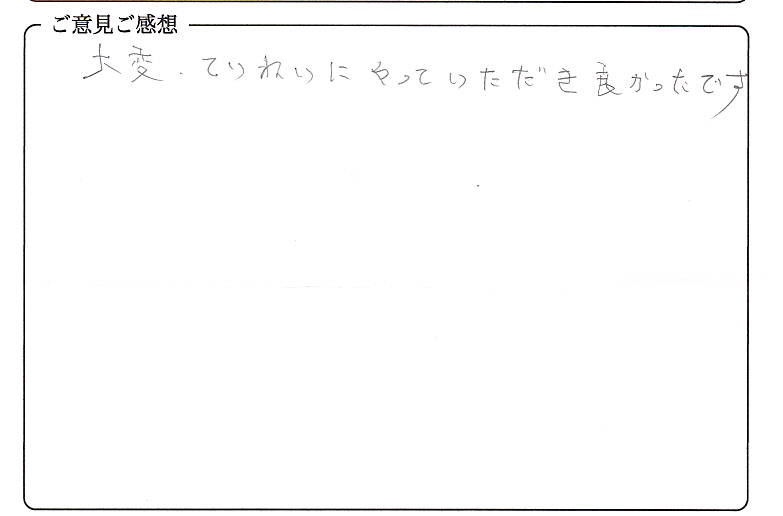 ご意見ご感想
大変、ていねいにやっていただき良かったです